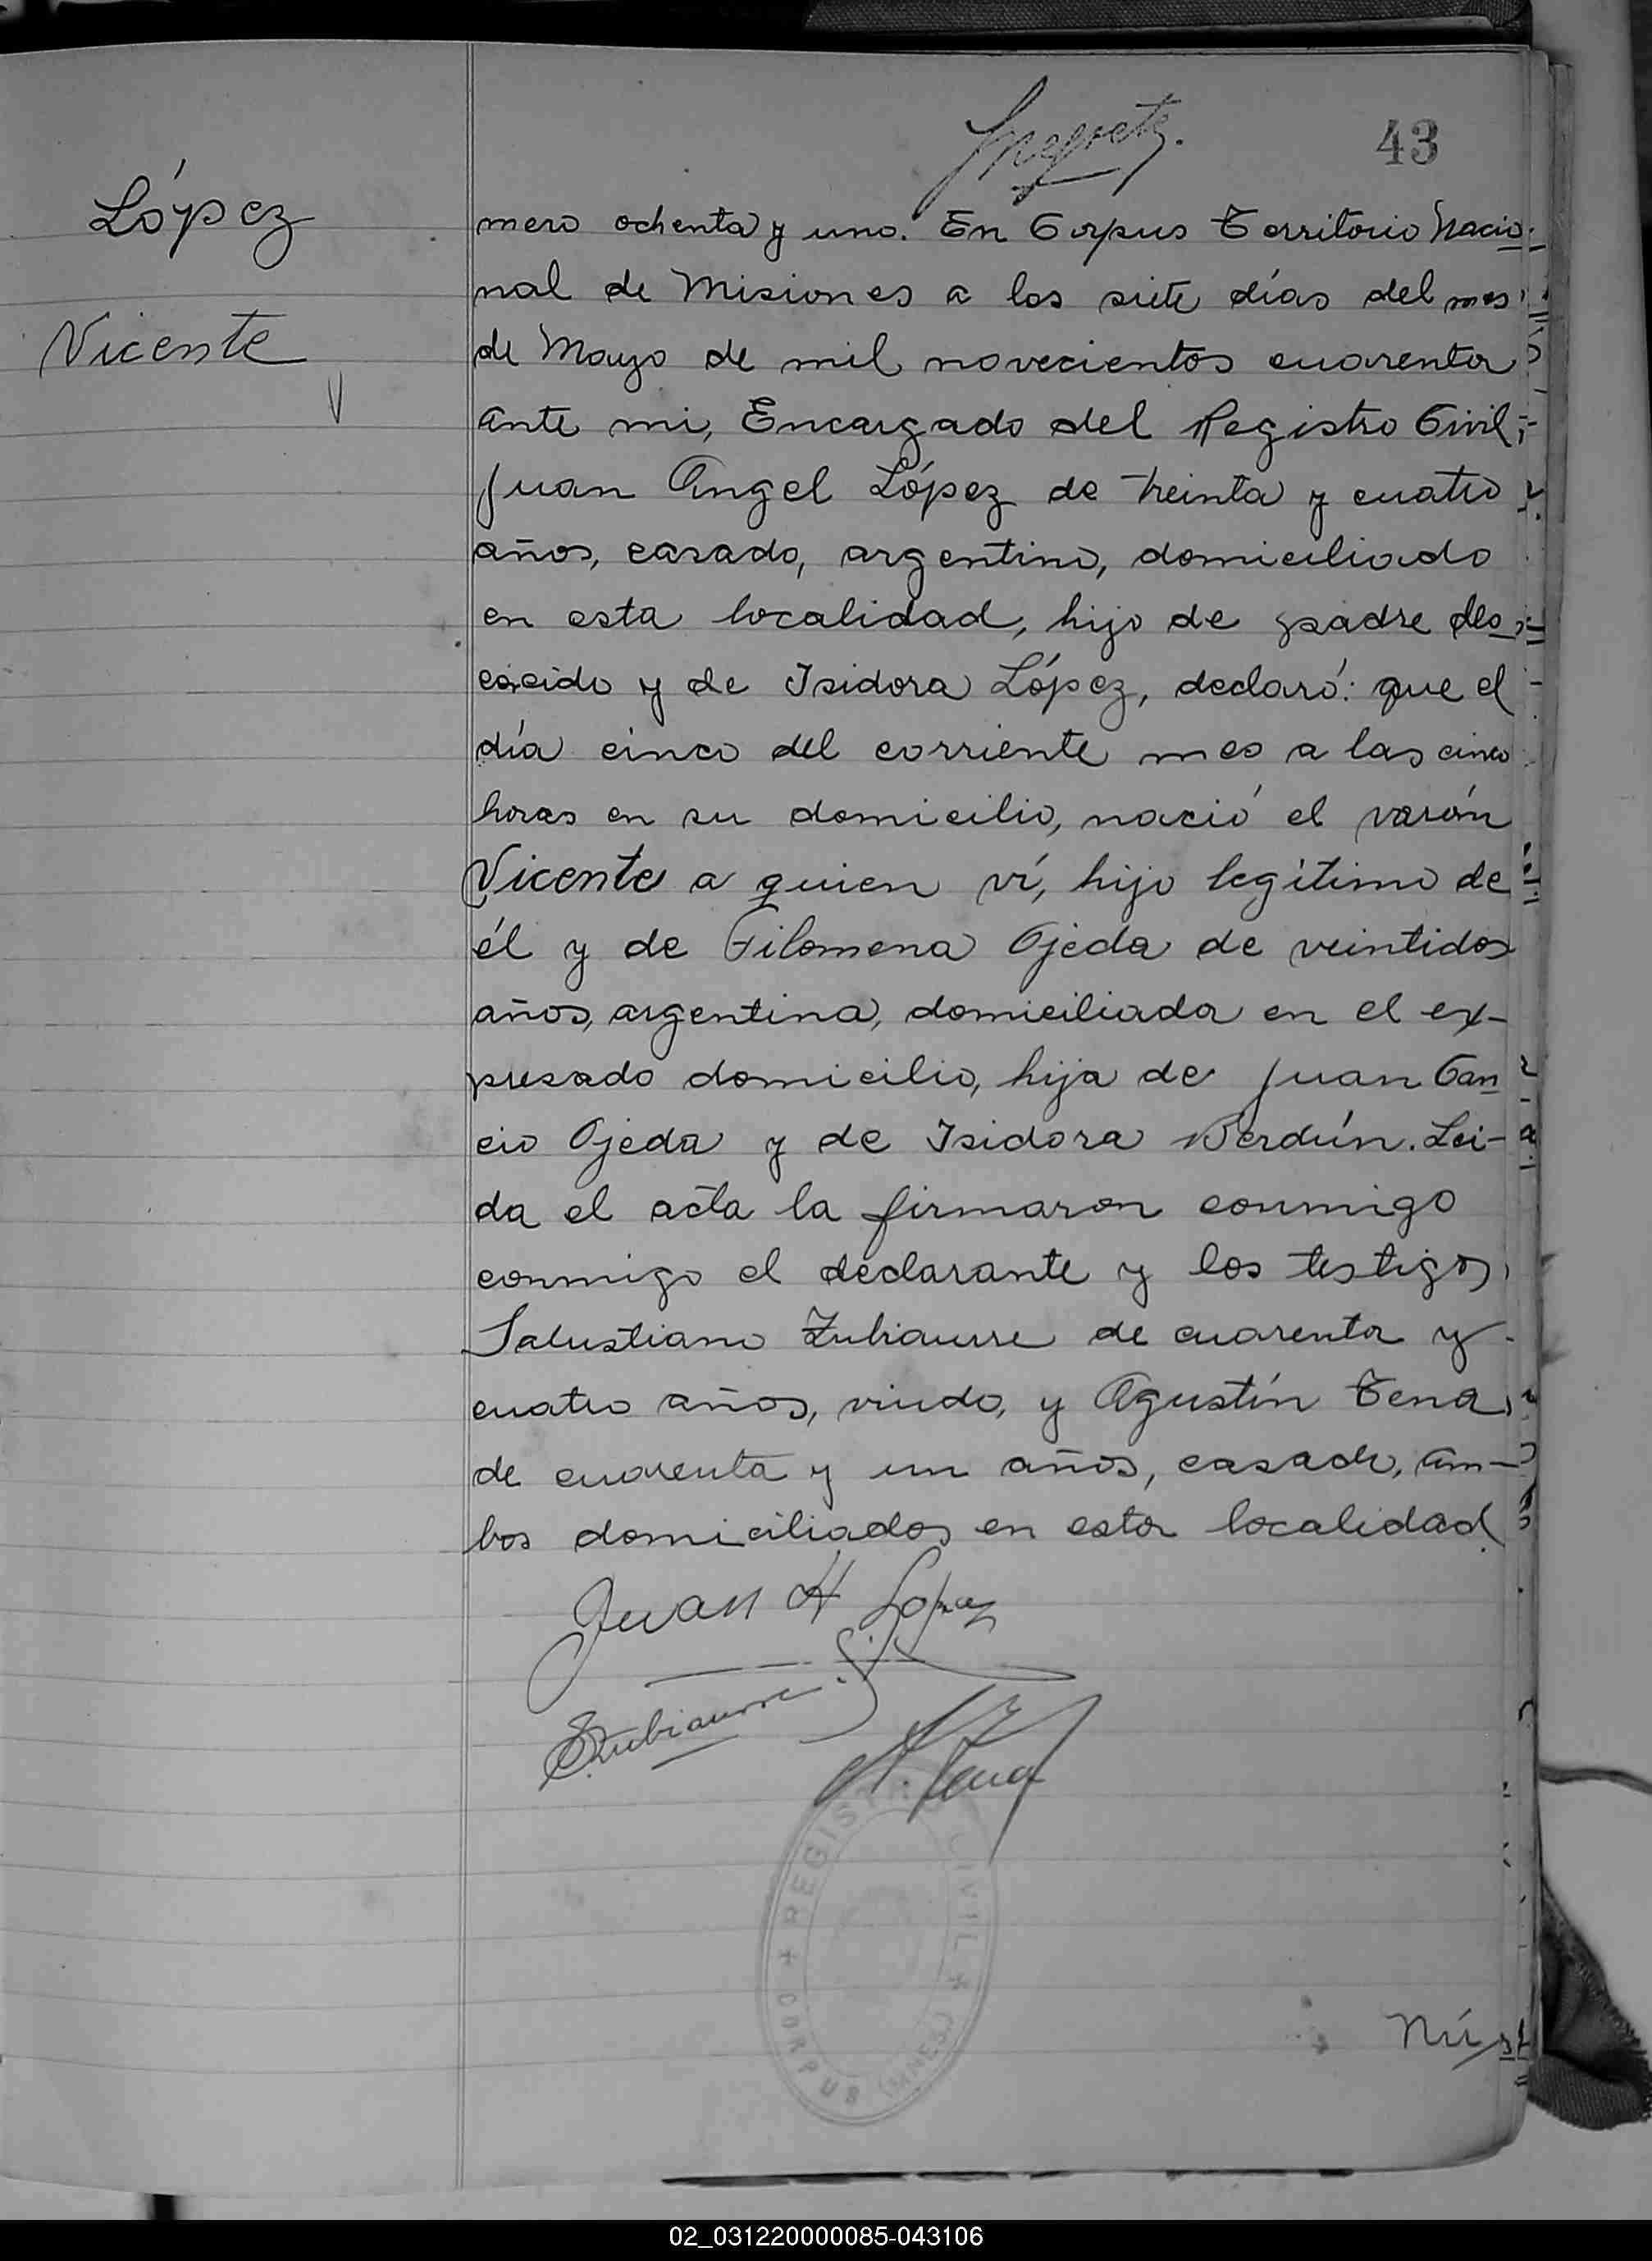 43
López
Vicente
mero ochenta y uno. En Corpus Territorio Nacio-
nal de Misiones a los siete días del mes
de Mayo de mil novecientos cuarenta
ante mi, Encargado del Registro Civil,
Juan Angel López de treinta y cuatro
años, casado, argentino, domiciliado
en esta localidad, hijo de padre
y de Isidora López, declaró: que el
día cinco del corriente mes a las cinco
horas en su domicilio, nació el varón
Vicente a quien ví, hijo legítimo de
él y de Filomena Ojeda de veintidos
años, argentina, domiciliada en el ex-
presado domicilio, hija de Juan Can
cio Ojeda y de Isidora Berdún. Lei-
da el acta la firmaron conmigo
conmigo el declarante y los testigos,
Salustiano Zubiaurre de cuarenta y
cuatro años, viudo, y Agustín Tena,
de cuarenta y un años, casado, am-
bos domiciliados en esta localidad
Juan A López
Zubiaurre
A. Tena
REGISTRO CIVIL * (MNES.)
* CORPUS
Nú
02_031220000085-043106